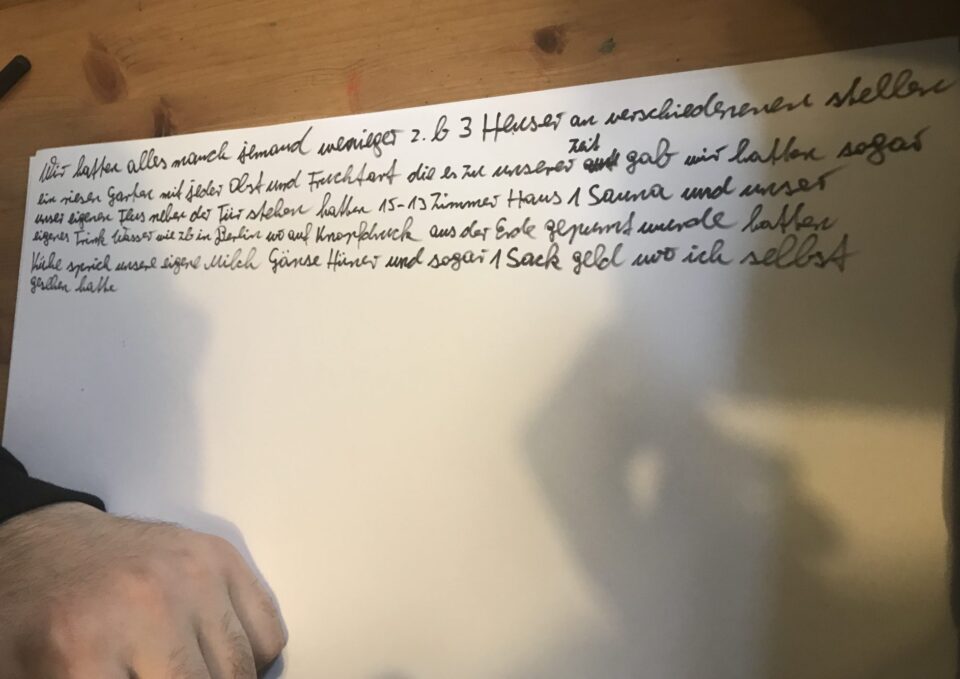 Wir hatten alles manch jemand wenieger z.b 3 Heuser an verschiedenenen stellen
ein riesen Garten mit jeder Obst und Fruchtart die es zu unserer Zeit gab wir hatten sogar
unser eigenen Flus neben der Tür stehen hatten 15-13 Zimmer Haus 1 Sauna und unser
eigenes Trink Wasser wie zb in Berlin wo auf Knopfdruck aus der Erde gepumt wurde hatten
Kühe sprich unsere eigene Milch Gänse Hüner und sogar 1 Sack geld wo ich selbst
gesehen hatte